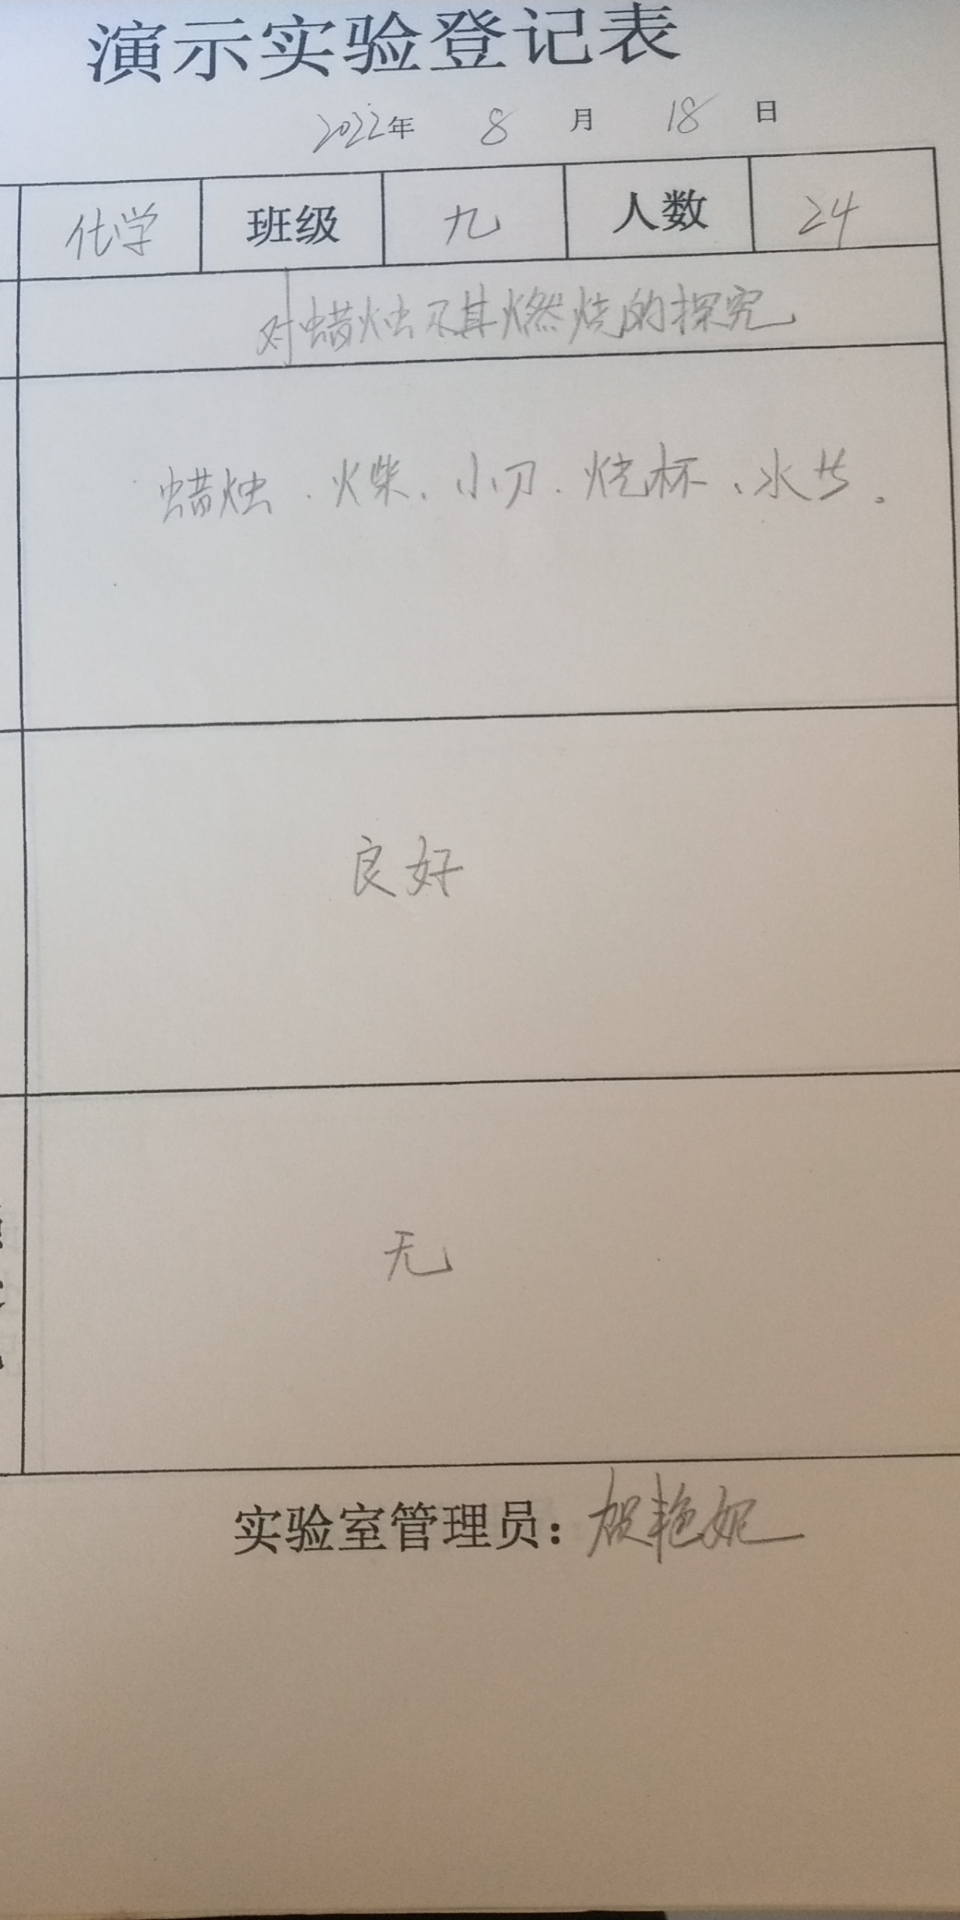 演示实验登记表
2022年 8 月 18 日
化学 班级 九 人数 24
对蜡烛及其燃烧的探究
蜡烛、火柴、小刀、烧杯、水
良好
无
实验室管理员：贺艳妮